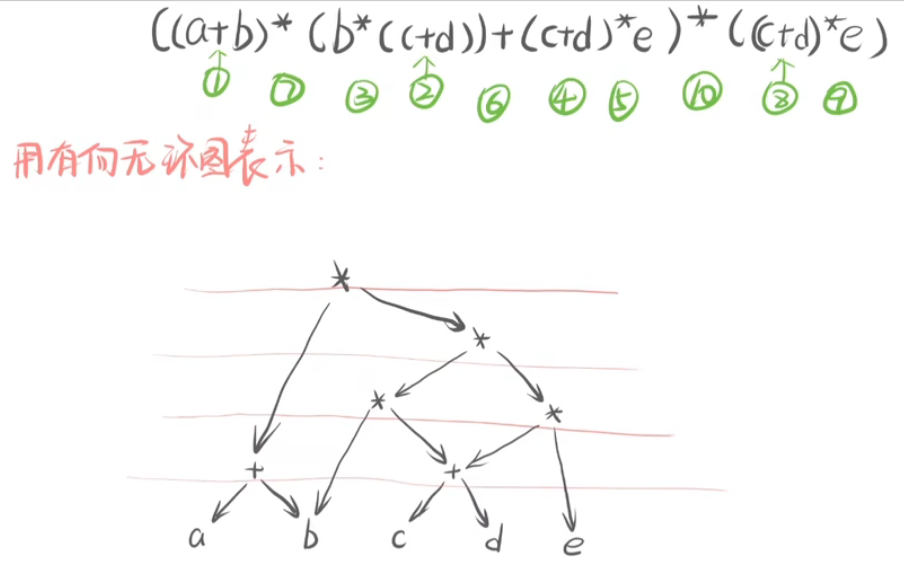 ((a+b)*(b*(c+d))+(c+d)*e)*((c+d)*e)
① ⑦ ③ ② ⑥ ④ ⑤ ⑩ ⑧ ⑨
用有向无环图表示:
*
*
* *
+ +
a b c d e